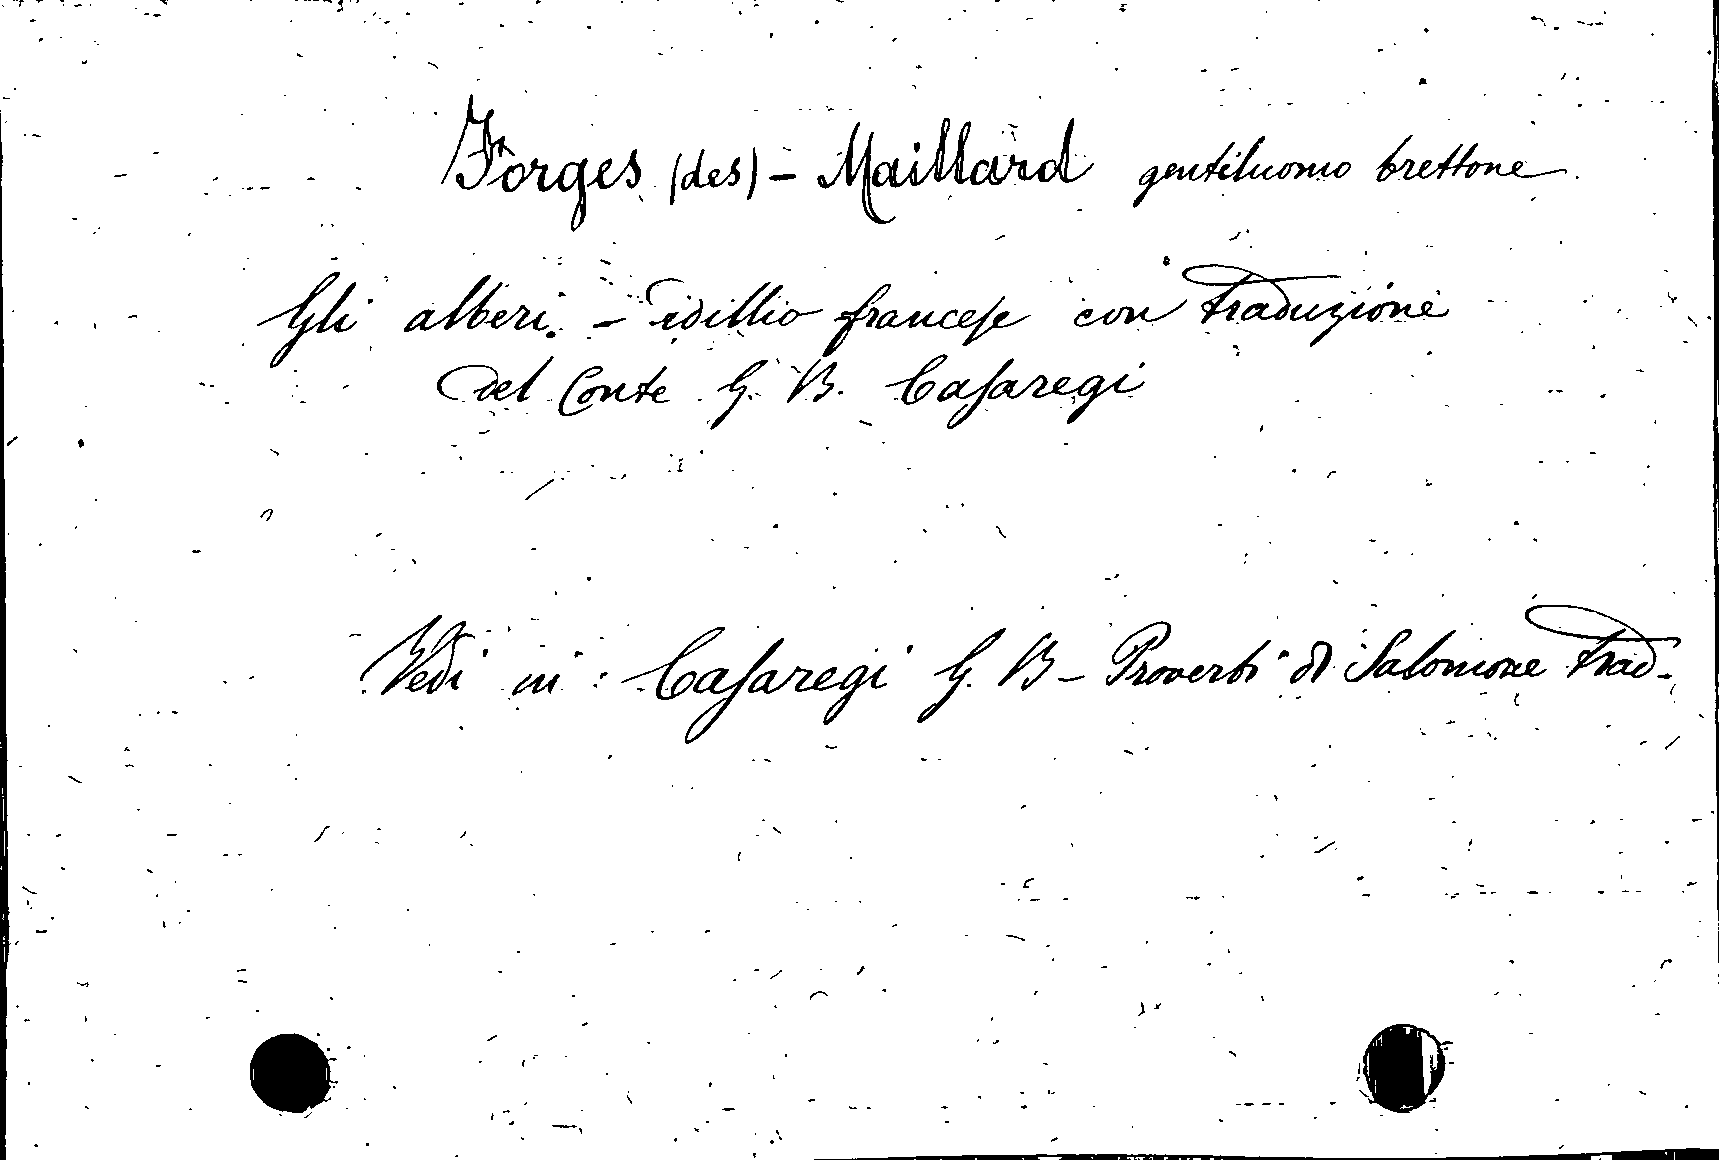 Forges (des) - Maillard gentiluomo brettone
Gli alberi. - idillio francese con traduzione
del Conte G. B. Casaregi
Vedi in: Casaregi G. B - Proverbi di Salomone trad.